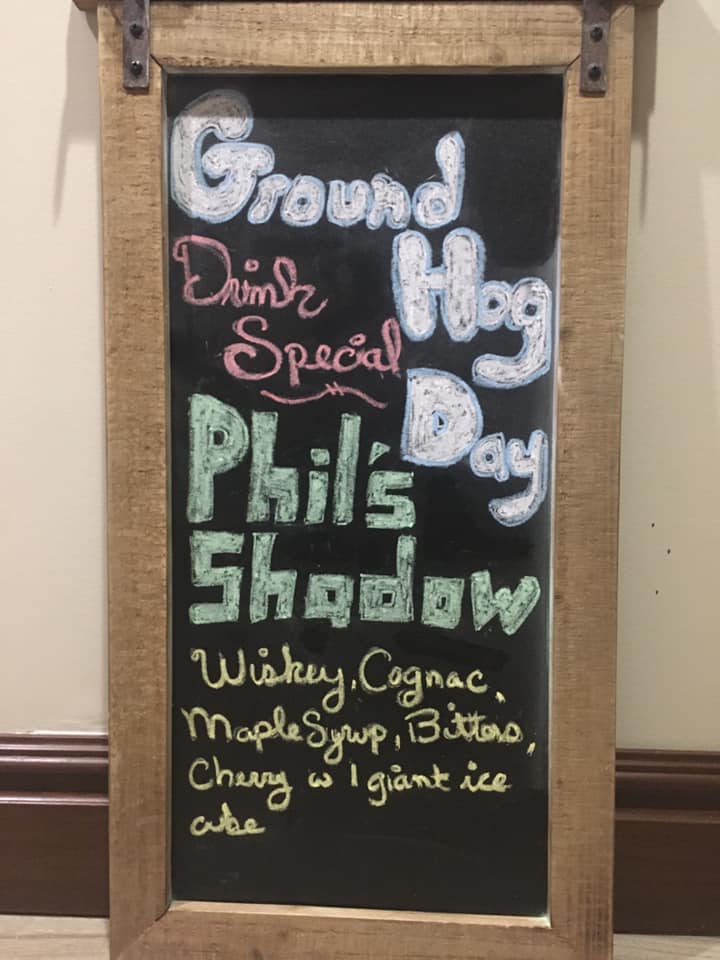 Ground
Hog
Day
Drink
Special
Phil's
Shadow
Wiskey, Cognac,
Maple Syrup, Bitters,
Cherry w 1 giant ice
cube